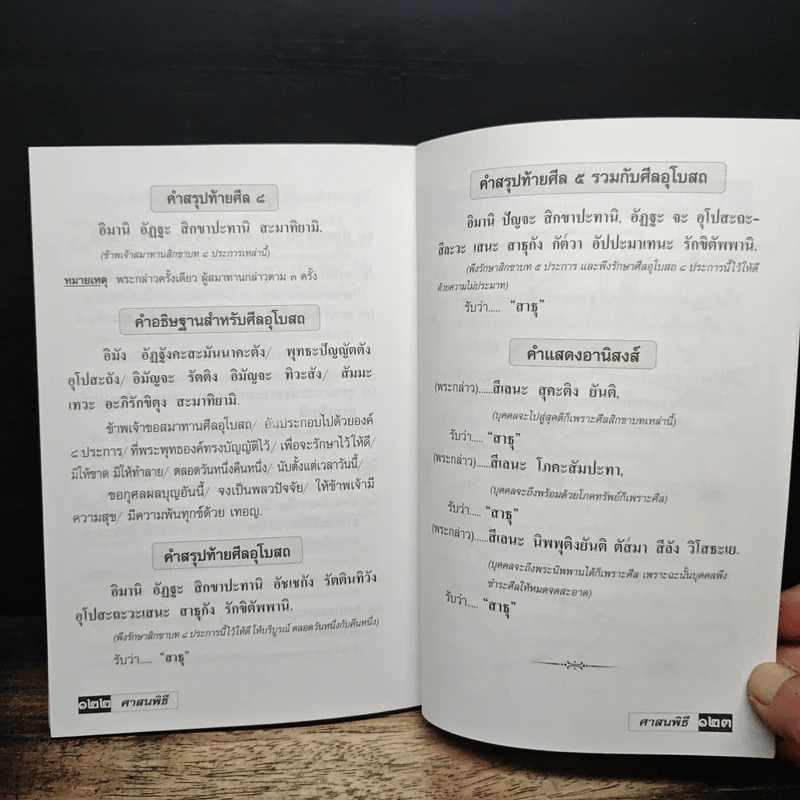 คำสรุปท้ายศีล ๘
อิมานิ อัฏฐะ สิกขาปะทานิ สะมาทิยามิ.
(ข้าพเจ้าสมาทานสิกขาบท ๘ ประการเหล่านี้)
หมายเหตุ พระกล่าวครั้งเดียว ผู้สมาทานกล่าวตาม ๓ ครั้ง
คำอธิษฐานสำหรับศีลอุโบสถ
อิมัง อัฏฐังคะสะมันนาคะตัง/ พุทธะปัญญัตตัง
อุโปสะถัง/ อิมัญจะ รัตติง อิมัญจะ ทิวะสัง/ สัมมะ
เทวะ อะภิรักขิตุง สะมาทิยามิ.
ข้าพเจ้าขอสมาทานศีลอุโบสถ/ อันประกอบไปด้วยองค์
๘ ประการ/ ที่พระพุทธองค์ทรงบัญญัติไว้/ เพื่อจะรักษาไว้ให้ดี/
มิให้ขาด มิให้ทำลาย/ ตลอดวันหนึ่งคืนหนึ่ง/ นับตั้งแต่เวลาวันนี้/
ขอกุศลผลบุญอันนี้/ จงเป็นพลวปัจจัย/ ให้ข้าพเจ้ามี
ความสุข/ มีความพ้นทุกข์ด้วย เทอญ.
คำสรุปท้ายศีลอุโบสถ
อิมานิ อัฏฐะ สิกขาปะทานิ อัชเชกัง รัตตินทิวัง
อุโปสะถะวะเสนะ สาธุกัง รักขิตัพพานิ.
(พึงรักษาสิกขาบท ๘ ประการนี้ไว้ให้ดี ให้บริบูรณ์ ตลอดวันหนึ่งกับคืนหนึ่ง)
รับว่า..... “สาธุ”
๑๒๒ ศาสนพิธี
คำสรุปท้ายศีล ๕ รวมกับศีลอุโบสถ
อิมานิ ปัญจะ สิกขาปะทานิ, อัฏฐะ จะ อุโปสะถะ-
สีละวะ เสนะ สาธุกัง กัต๎วา อัปปะมาเทนะ รักขิตัพพานิ.
(พึงรักษาสิกขาบท ๕ ประการ และพึงรักษาศีลอุโบสถ ๘ ประการนี้ไว้ให้ดี
ด้วยความไม่ประมาท)
รับว่า..... “สาธุ”
คำแสดงอานิสงส์
(พระกล่าว).....สีเลนะ สุคะติง ยันติ,
(บุคคลจะไปสู่สุคติก็เพราะศีลสิกขาบทเหล่านี้)
รับว่า..... “สาธุ”
(พระกล่าว).....สีเลนะ โภคะสัมปะทา,
(บุคคลจะถึงพร้อมด้วยโภคทรัพย์ก็เพราะศีล)
รับว่า..... “สาธุ”
(พระกล่าว).....สีเลนะ นิพพุติงยันติ ตัส๎มา สีลัง วิโสธะเย.
(บุคคลจะถึงพระนิพพานได้ก็เพราะศีล เพราะฉะนั้นบุคคลพึง
ชำระศีลให้หมดจดสะอาด)
รับว่า..... “สาธุ”
ศาสนพิธี ๑๒๓